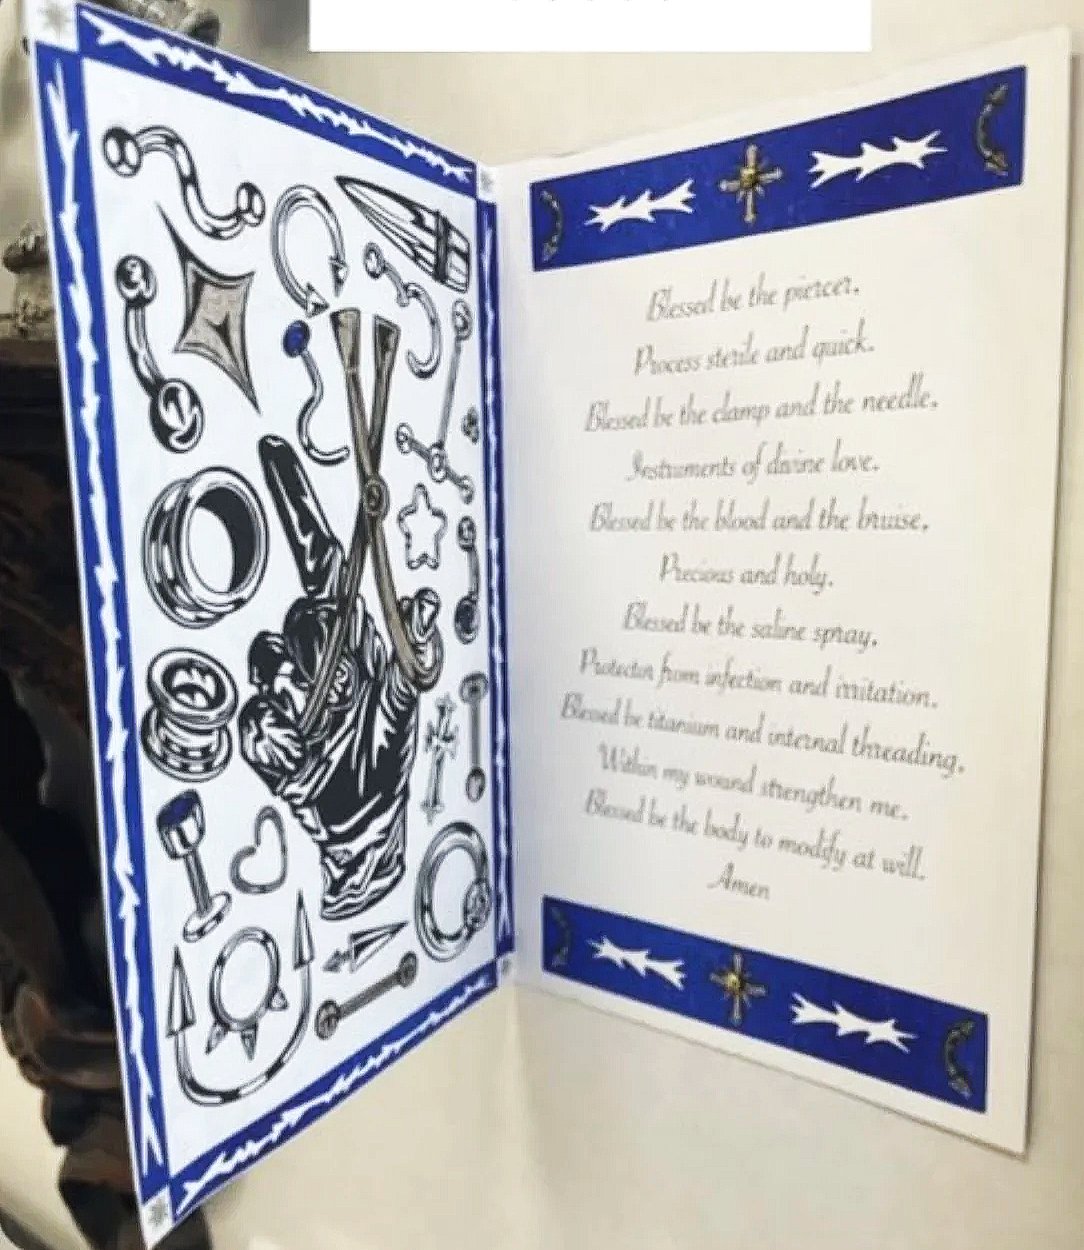 Blessed be the piercer.
Process sterile and quick.
Blessed be the clamp and the needle.
Instruments of divine love.
Blessed be the blood and the bruise.
Precious and holy.
Blessed be the saline spray.
Protector from infection and irritation.
Blessed be titanium and internal threading.
Within my wound strengthen me.
Blessed be the body to modify at will.
Amen